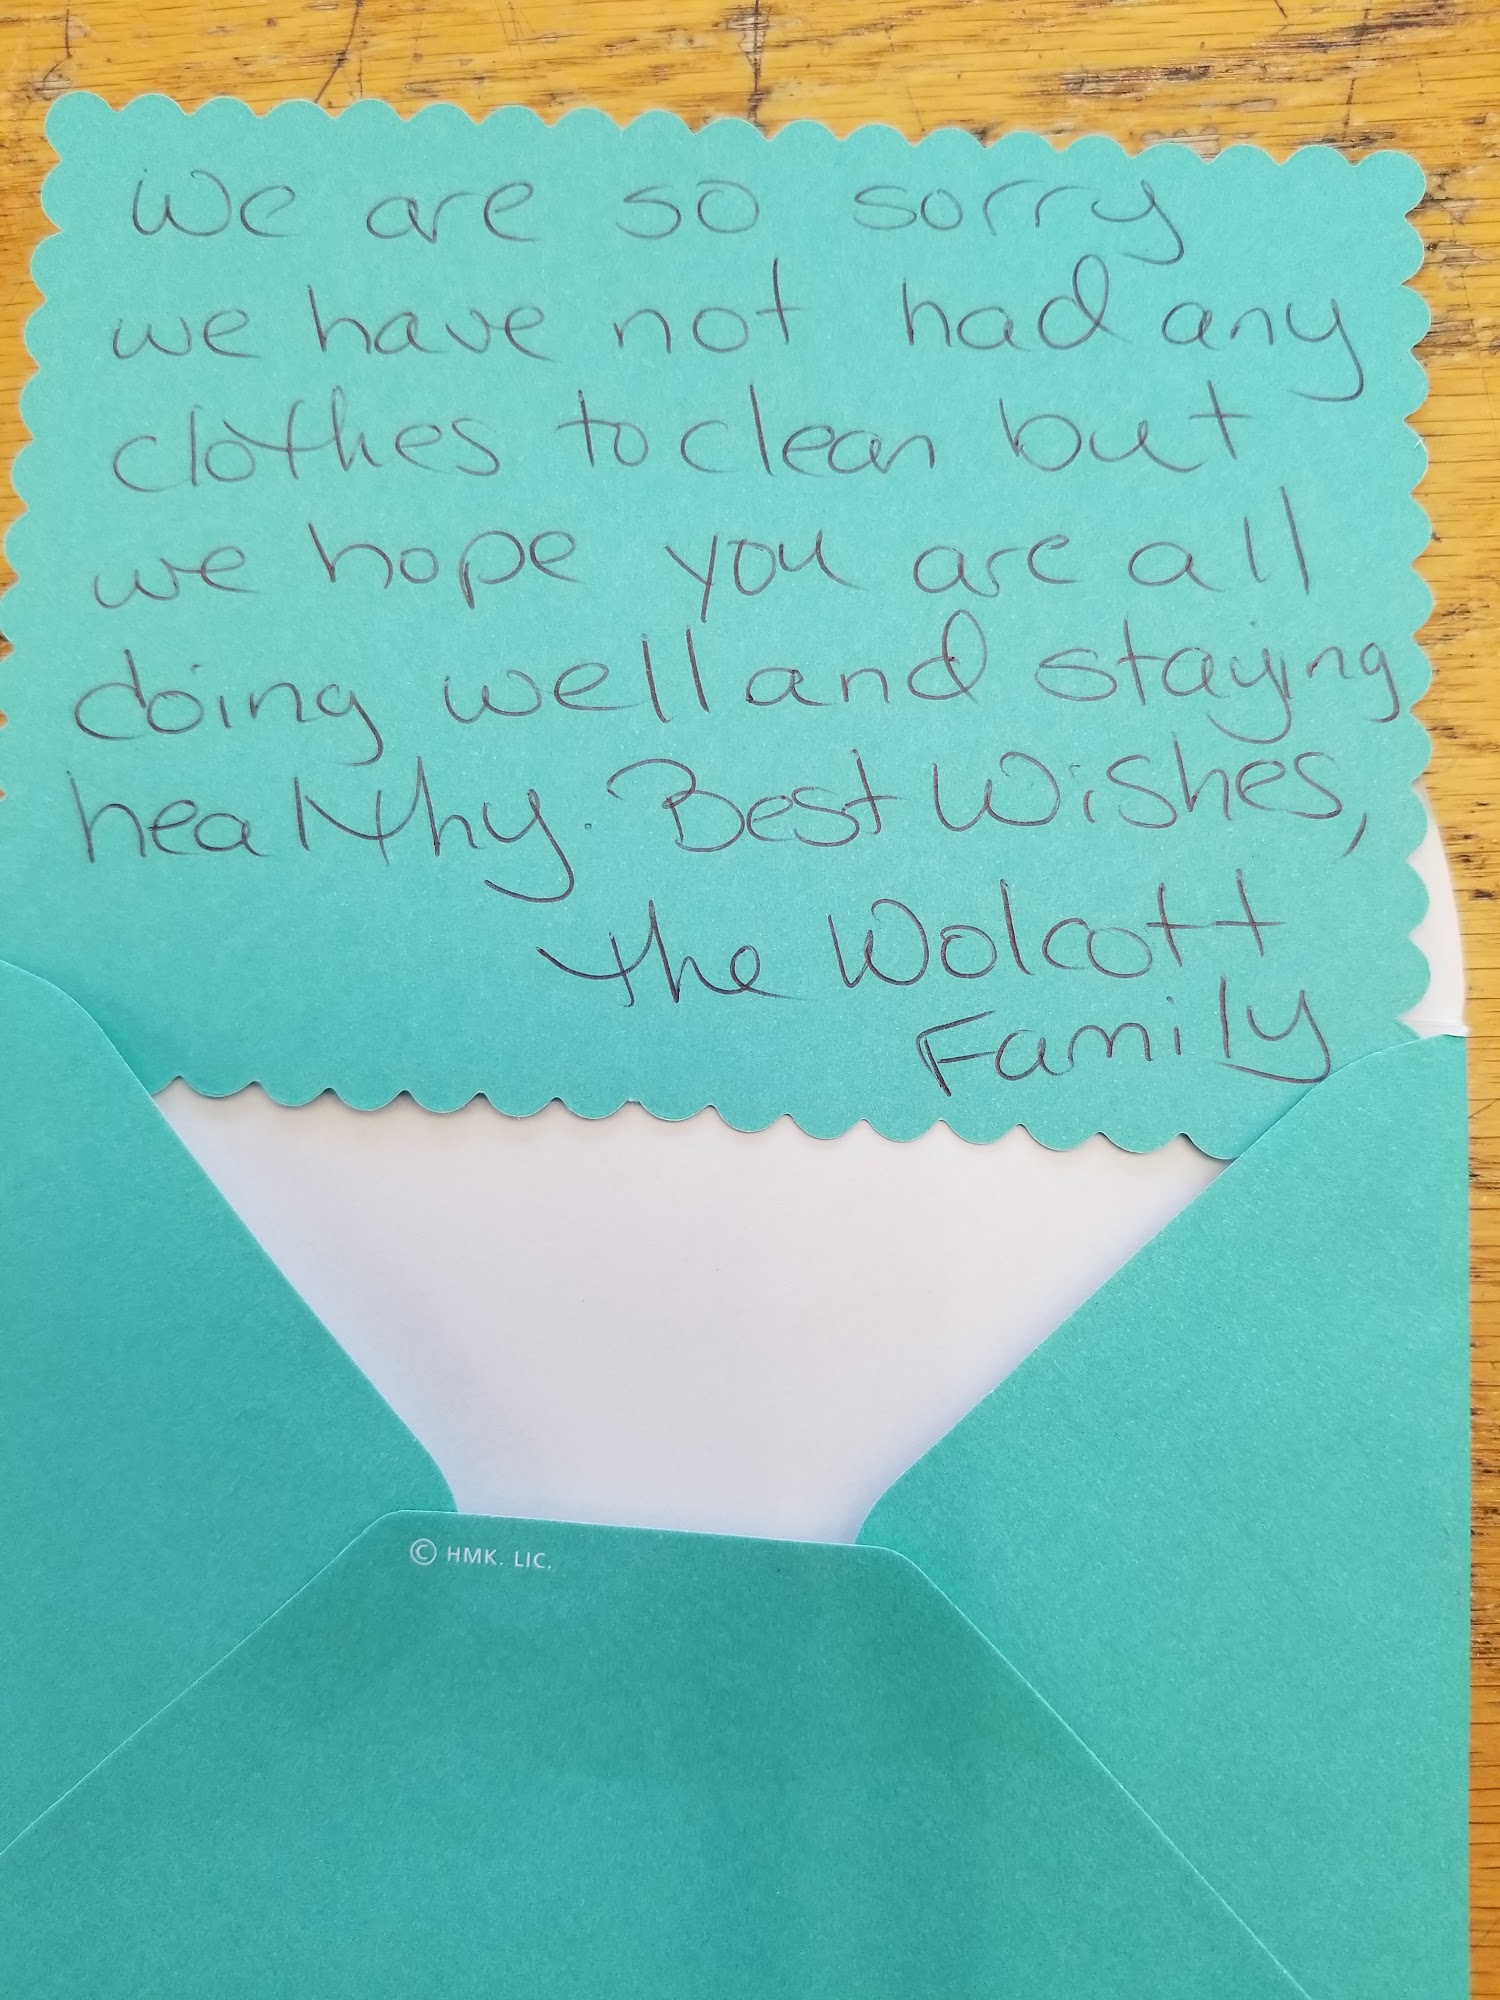 We are so sorry
we have not had any
clothes to clean but
we hope you are all
doing well and staying
healthy. Best Wishes,
The Wolcott
Family
© HMK. LIC.